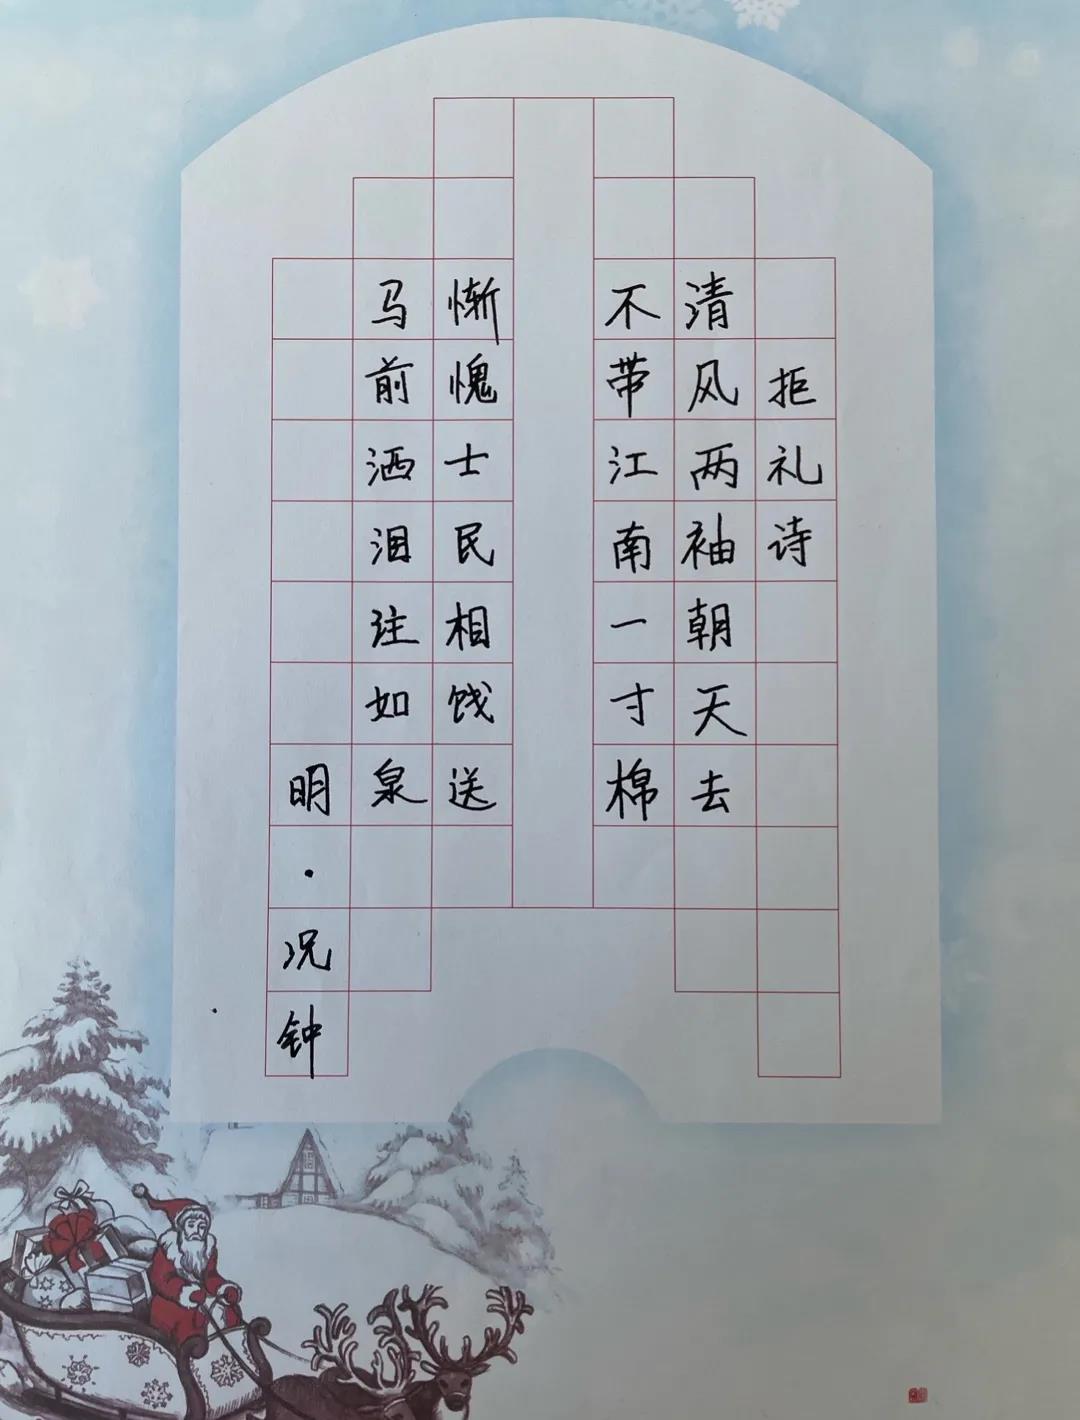 拒礼诗
清风两袖朝天去
不带江南一寸棉
惭愧士民相饯送
马前洒泪注如泉
明·况钟